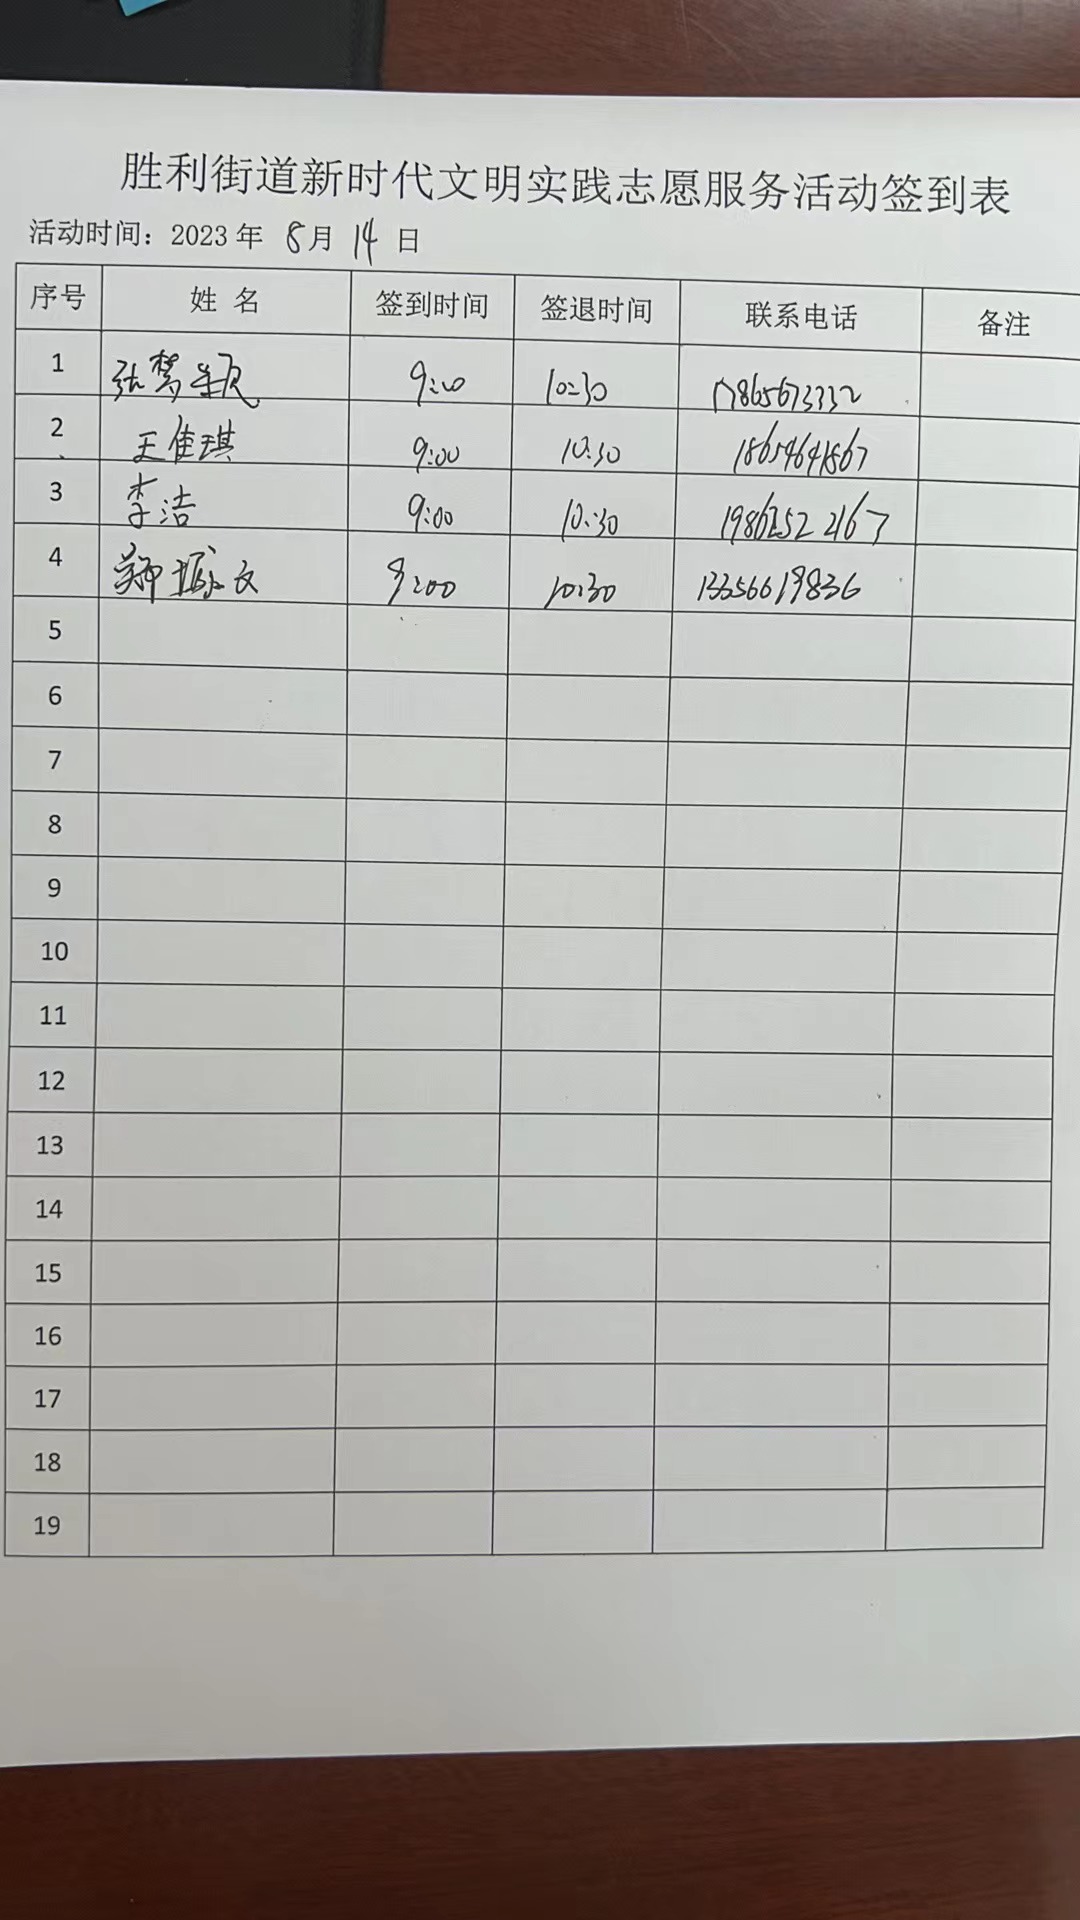 胜利街道新时代文明实践志愿服务活动签到表
活动时间：2023 年 8 月 14 日
序号 姓 名 签到时间 签退时间 联系电话 备注
1 张梦 9:00 10:30 17865673332
2 王佳琪 9:00 10:30 18654641867
3 李洁 9:00 10:30 19862522167
4 郑 文 9:00 10:30 13356619836
5
6
7
8
9
10
11
12
13
14
15
16
17
18
19